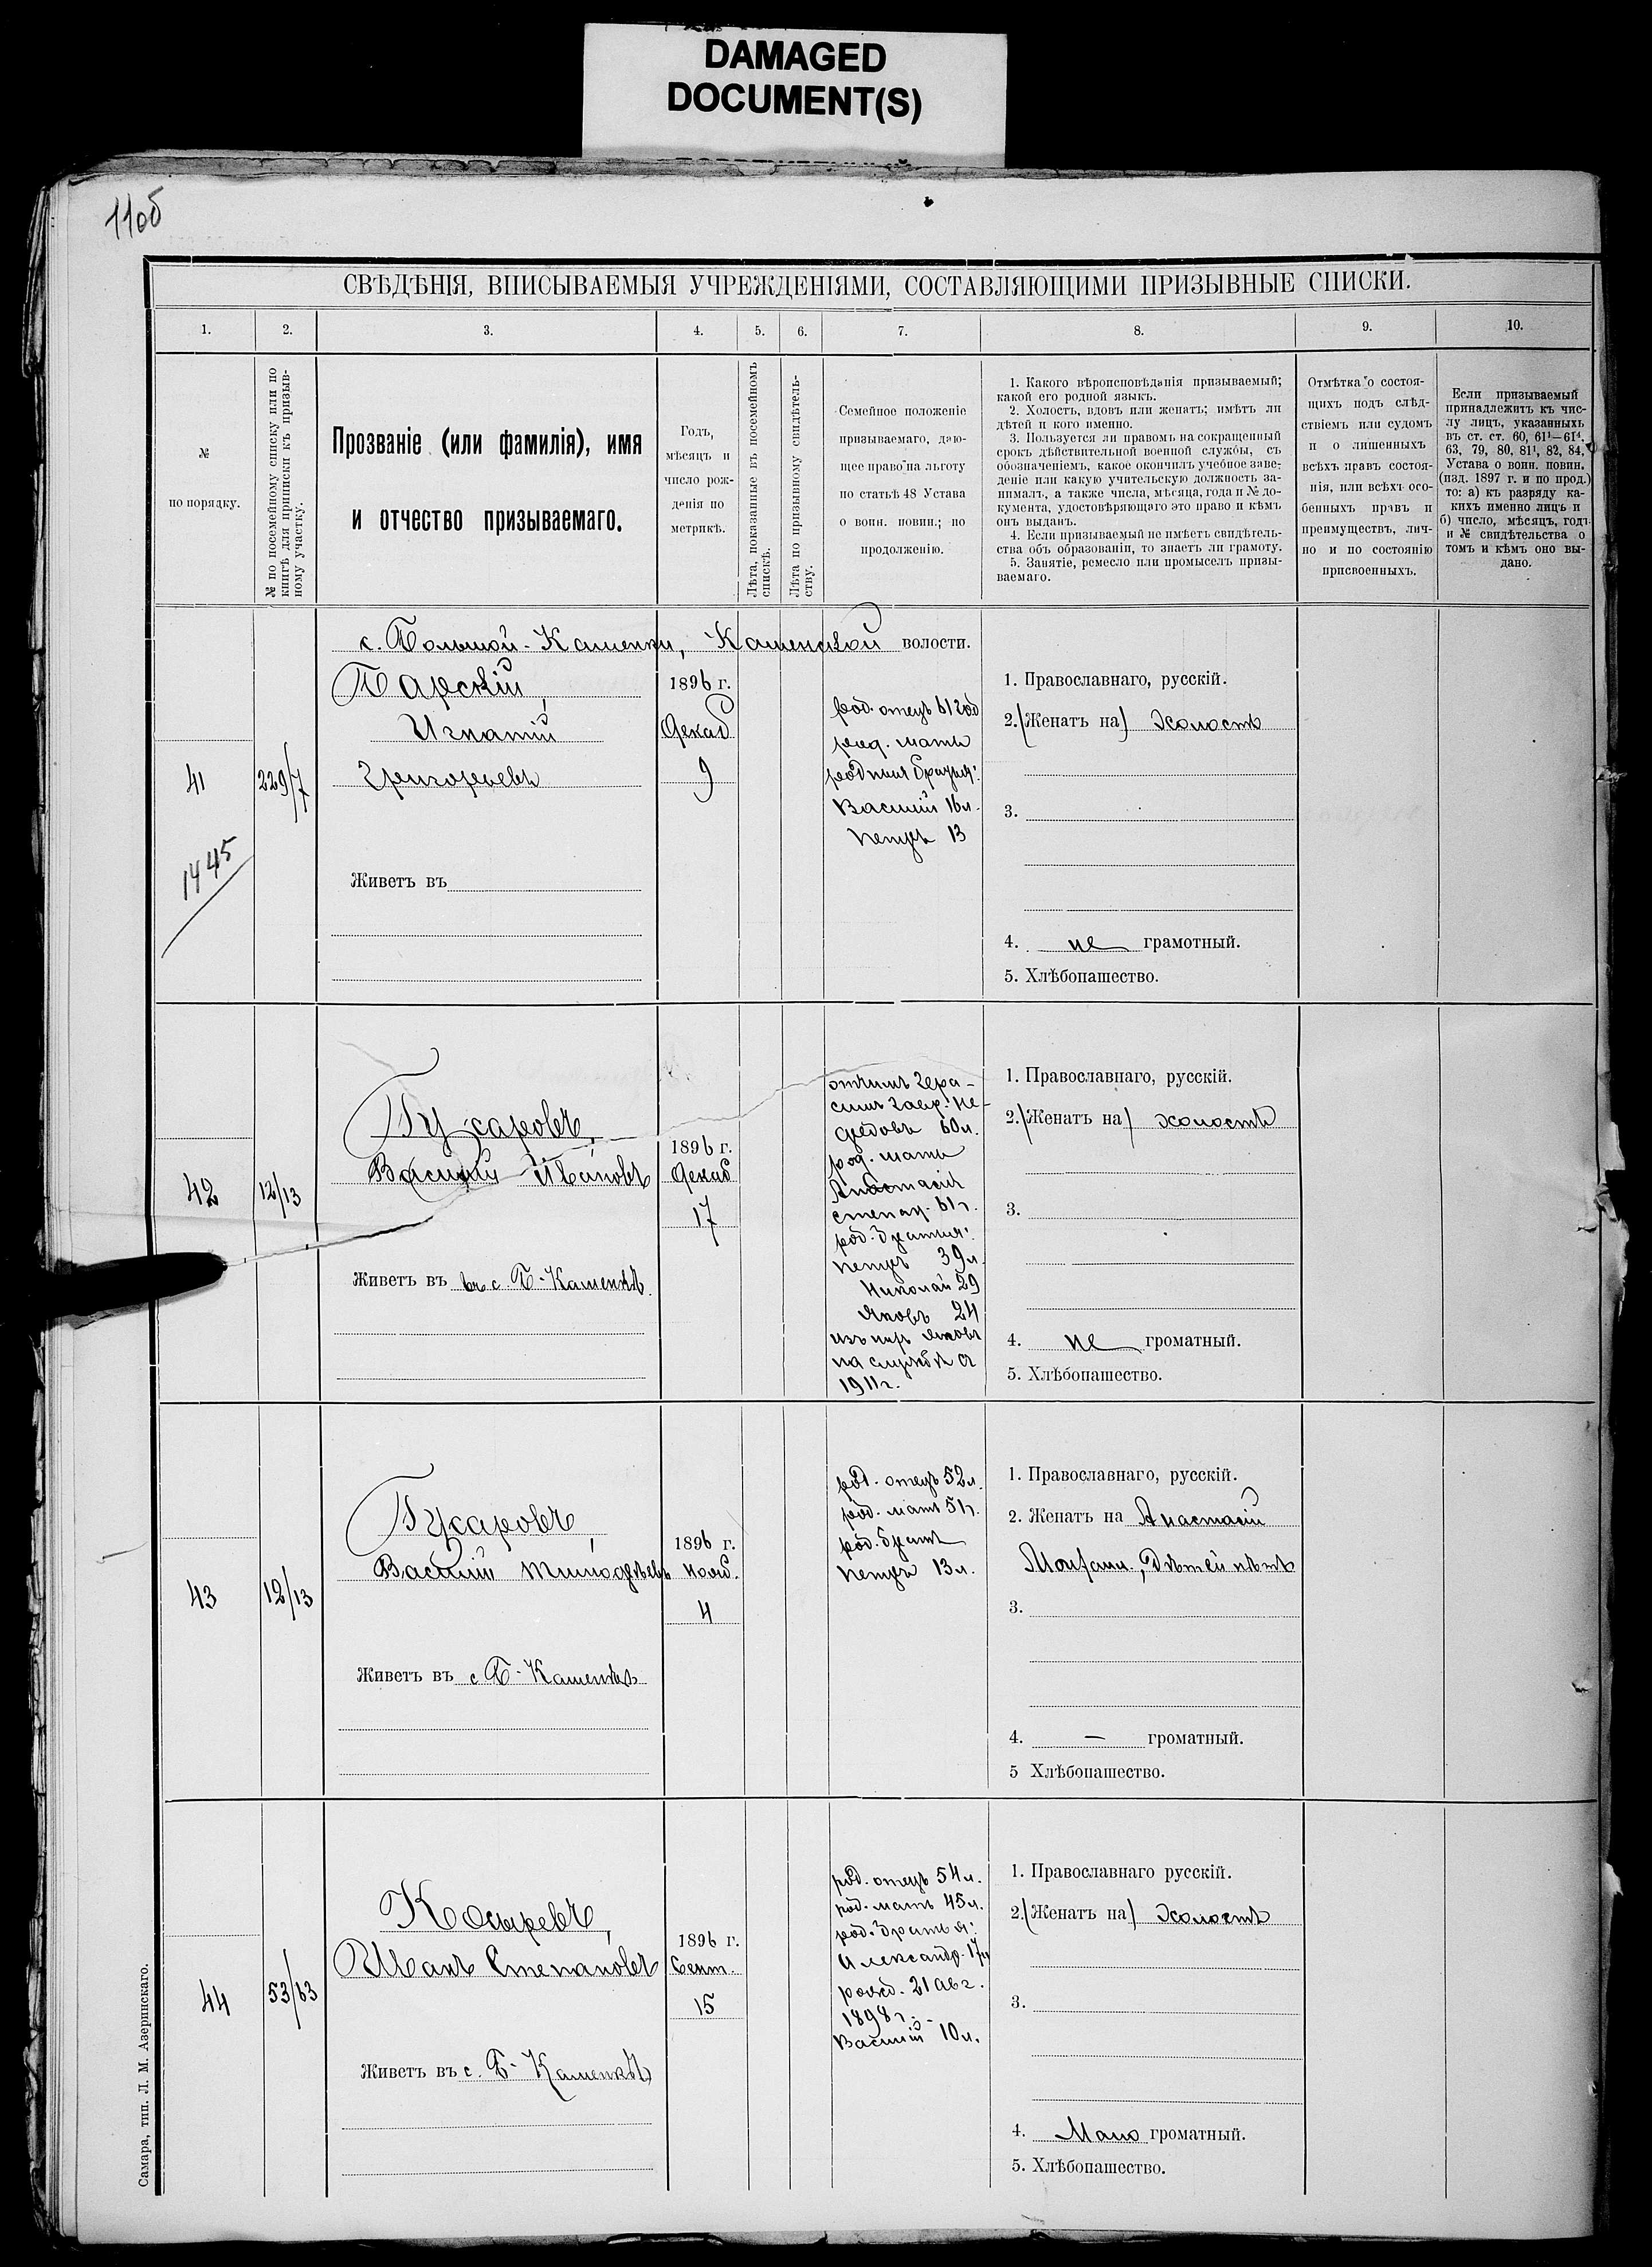 DAMAGED
DOCUMENT(S)
11об
СВѢДѢНІЯ, ВПИСЫВАЕМЫЯ УЧРЕЖДЕНІЯМИ, СОСТАВЛЯЮЩИМИ ПРИЗЫВНЫЕ СПИСКИ.
1. 2. 3. 4. 5. 6. 7. 8. 9. 10.
№
по порядку.
№ по посемейному списку или по
книгѣ для приписки къ призыв-
ному участку.
Прозваніе (или фамилія), имя
и отчество призываемаго.
Годъ,
мѣсяцъ и
число рож-
денія по
метрикѣ.
Лѣта, показанныя въ посемейномъ
спискѣ.
Лѣта по призывному свидѣтель-
ству.
Семейное положеніе
призываемаго, даю-
щее право на льготу
по статьѣ 48 Устава
о воин. повин.; по
продолженію.
1. Какого вѣроисповѣданія призываемый;
какой его родной языкъ.
2. Холостъ, вдовъ или женатъ; имѣтъ ли
дѣтей и кого именно.
3. Пользуется ли правомъ на сокращенный
срокъ дѣйствительной военной службы, съ
обозначеніемъ, какое окончилъ учебное заве-
деніе или какую учительскую должность за-
нималъ, а также числа, мѣсяца, года и № до-
кумента, удостовѣряющаго это право и кѣмъ
онъ выданъ.
4. Если призываемый не имѣетъ свидѣтель-
ства объ образованіи, то знаетъ ли грамоту.
5. Занятіе, ремесло или промыселъ призы-
ваемаго.
Отмѣтка о состоя-
щихъ подъ слѣд-
ствіемъ или судомъ
и о лишенныхъ
всѣхъ правъ состоя-
нія, или всѣхъ осо-
бенныхъ правъ и
преимуществъ, лич-
но и по состоянію
присвоенныхъ.
Если призываемый
принадлежитъ къ чис-
лу лицъ, указанныхъ
въ ст. ст. 60, 61¹—61⁴,
63, 79, 80, 81¹, 82, 84,
Устава о воин. повин.
(изд. 1897 г. и по прод.)
то: а) къ разряду ка-
кихъ именно лицъ и
б) число, мѣсяцъ, годъ
и № свидѣтельства о
томъ и кѣмъ оно вы-
дано.
с. Большой-Каменки, Каменской волости.
41
1445
229/7
Барскій,
Игнатій
Григорьевъ
Живетъ въ
1896 г.
Декаб
9
род. отецъ 61 год
род. мать
родныя братья:
Василій 16 л.
Петръ 13
1. Православнаго, русскій.
2. (Женатъ на) Холостъ
3.
4. не грамотный.
5. Хлѣбопашество.
42
12/13
Гусаровъ,
Василій Ивановъ
Живетъ въ въ с. Б-Каменкѣ.
1896 г.
Декаб
17
отчимъ Гера-
симъ Гавр. Не-
федовъ 60 л.
род. мать
Анастасія
степан. 61 г.
род. братья:
Петръ 39 л.
Николай 29
Яковъ 24
изъ нихъ Яковъ
на службѣ съ
1911 г.
1. Православнаго, русскій.
2. (Женатъ на) холостъ
3.
4. не громатный.
5. Хлѣбопашество.
43
12/13
Гусаровъ,
Василій Тимофѣевъ
Живетъ въ с Б-Каменкѣ
1896 г.
нояб.
4
род. отецъ 52 л.
род. мать 51 г.
род. братъ
Петръ 13 л.
1. Православнаго, русскій.
2. Женатъ на Анастасіи
дѣтей нѣтъ
3.
4. — громатный.
5 Хлѣбопашество.
44
53/63
Косыревъ,
Иванъ Степановъ
Живетъ въ с. Б-Каменкѣ
1896 г.
Сент.
15
род. отецъ 54 л.
род. мать 45 л.
род. братья:
Александр. 17 л
рожд. 21 авг.
1898 г. -
Василій 10 л.
1. Православнаго русскій.
2. (Женатъ на) Холостъ
3.
4. Мало громатный.
5. Хлѣбопашество.
Самара, тип. Л. М. Азеринскаго.